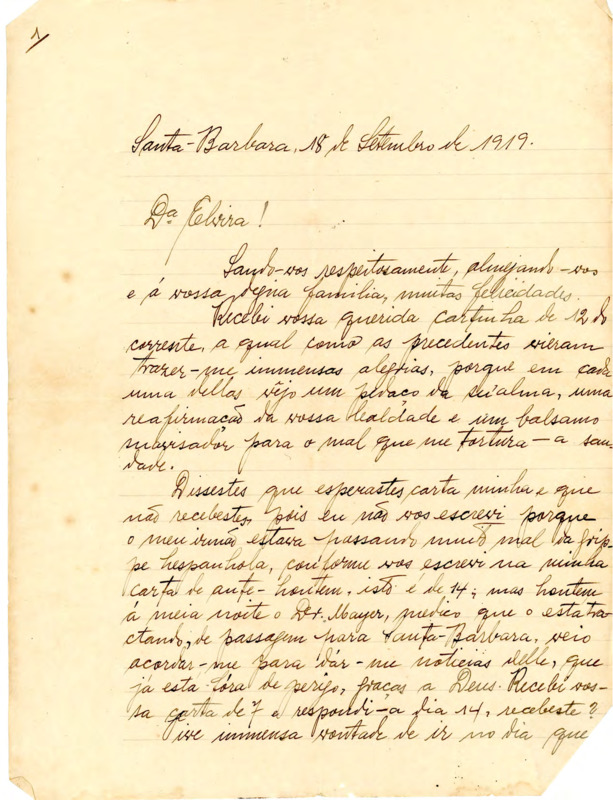 1/
Santa-Barbara, 18 de Setembro de 1919.
Da Elvira!
Saudo-vos respeitosamente, almejando-vos
e á vossa digna familia, muitas felicidades.
Recebi vossa querida cartinha de 12 do
corrente, a qual como as precedentes vieram
trazer-me immensas alegrias, porque em cada
uma dellas vejo um pedaço da su'alma, uma
reafirmação da vossa lealdade e um balsamo
suavisador para o mal que me tortura - a sau-
dade.
Dissestes que esperastes carta minha e que
não recebestes, pois eu não vos escrevi porque
o meu irmão estava passando muito mal da grip-
pe hespanhola, conforme vos escrevi na minha
carta de ante-hontem, isto é de 14; mas hontem
á meia noite o Dr. Mayer, medico que o esta tra-
ctando, de passagem para Santa-Barbara, veio
acordar-me para dár-me noticias delle, que
já está fóra de perigo, graças a Deus. Recebi vos-
sa carta de 7 e respondi-a dia 14, recebeste?
Tive immensa vontade de ir no dia que